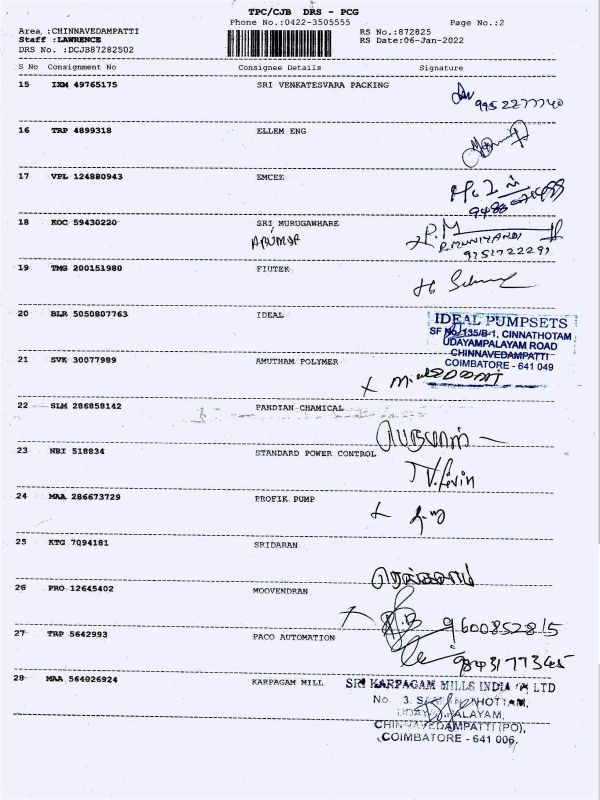 TPC/CJB DRS - PCG
Phone No.:0422-3505555 Page No.:2
Area :CHINNAVEDAMPATTI RS No.:872825
Staff :LAWRENCE RS Date:06-Jan-2022
DRS No. :DCJB87282502
S No Consignment No Consignee Details Signature
15 IXM 49765175 SRI VENKATESVARA PACKING
9952277740
16 TRP 4899318 ELLEM ENG
17 VPL 124880943 EMCEE
18 KOC 59430220 SRI MURUGAWHARE P.M
R.MUNIYANDI
9751722291
19 TMG 200151980 FIUTEK
20 BLR 5050807763 IDEAL
IDEAL PUMPSETS
SF No/135/B-1, CINNATHOTAM
UDAYAMPALAYAM ROAD
CHINNAVEDAMPATTI
COIMBATORE - 641 049
21 SVK 30077989 AMUTHAM POLYMER
22 SLM 286859142 PANDIAN CHAMICAL
23 NRI 518834 STANDARD POWER CONTROL
24 MAA 286673729 PROFIK PUMP
25 KTG 7094181 SRIDARAN
26 PRO 12645402 MOOVENDRAN
9600852815
27 TRP 5642993 PACO AUTOMATION
28 MAA 564026924 KARPAGAM MILL
SRI KARPAGAM MILLS INDIA LTD
No. 3,
CHINNAVEDAMPATTI (PO),
COIMBATORE - 641 006.